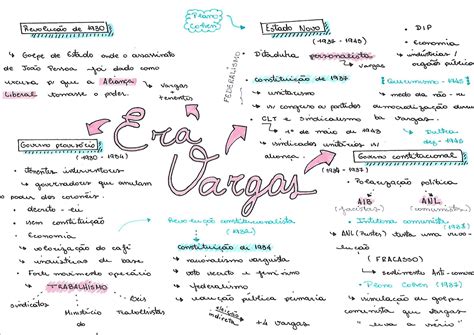 Revolução de 1930
↳ Golpe de Estado onde o assassinato
de João Pessoa foi dado como
excusa p/ que a Aliança
Liberal tomasse o poder.
↳ Vargas
+ tenentes
Plano
Cohen
FEDERALISMO
Estado Novo
(1937 - 1945)
• Ditadura personalista
↳ Vargas
constituição de 1937
↳ unitarismo
↳ congresso e partidos
• CLT e sindicalismo
↳ 1º de maio de 1943
↳ sindicatos unitários s/
aliança.
• DIP
• Economia
↳ indústrias /
órgãos públicos
Queremismo - 1945
↳ medo da não
democratização
de Vargas.
↳
dez - 1945
Era
Vargas
Governo provisório
(1930 - 1934)
• Tenentes interventores
↳ governadores que anulam
o poder dos coronéis
• decreto - lei
• sem constituição
• Economia
↳ valorização do café
↳ indústrias de base
• Forte movimento operário
↳ TRABALHISMO
sindicatos
Ministério
do
Trabalho
leis
Revolução constitucionalista
(1932)
constituição de 1934
↳ nacionalismo varguista
↳ voto secreto e feminino
↳ federalismo
↳ educação pública primária
eleição
indireta
+4 Vargas
Governo constitucional
(1934 - 1937)
• Polarização política
AIB
(fascistas)
ANL
(comunistas)
• Intentona comunista
(1935)
↳ ANL (Prestes) tenta uma
revolução
(FRACASSO)
↳ sentimento Anti-comun
• Plano Cohen (1937)
↳ simulação de golpe
comunista de Vargas
"leva a sério"